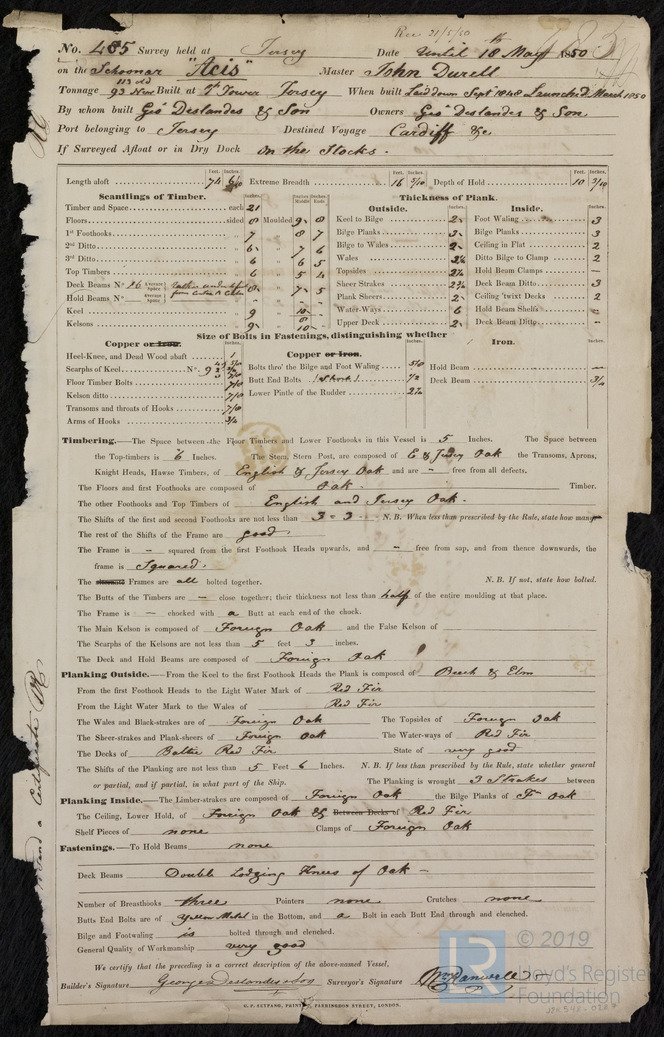 Rec 21/5/50
No. 485 Survey held at Jersey Date Until 18th May 1850
on the Schooner "Acis" Master John Durell
Tonnage 113 old 93 New Built at 1st Tower Jersey When built Laid down Sept 1848 Launched March 1850
By whom built Geo Deslandes & Son Owners Geo Deslandes & Son
Port belonging to Jersey Destined Voyage Cardiff &c
If Surveyed Afloat or in Dry Dock On the Stocks.
Length aloft 74 6/10 Extreme Breadth 16 5/10 Depth of Hold 10 3/10
Scantlings of Timber.
Timber and Space each 21
Floors sided 8 Moulded 9 8
1st Foothooks 7 8 7
2nd Ditto 6 7 6
3rd Ditto 6 6 5
Top Timbers 6 5 4
Deck Beams No 16 Average Space 8 7 5
Hold Beams No Average Space
Keel 9 10
Kelsons 9 10
Thickness of Plank.
Outside.
Keel to Bilge 2
Bilge Planks 3
Bilge to Wales 2
Wales
Topsides
Sheer Strakes
Plank Sheers 2
Water-Ways 6
Upper Deck 2
Inside.
Foot Waling 3
Bilge Planks 3
Ceiling in Flat 2
Ditto Bilge to Clamp 2
Hold Beam Clamps —
Deck Beam Ditto 3
Ceiling 'twixt Decks 2
Hold Beam Shelfs —
Deck Beam Ditto —
Size of Bolts in Fastenings, distinguishing whether
Copper or Iron.
Heel-Knee, and Dead Wood abaft 1
Scarphs of Keel No 9
Floor Timber Bolts 7/8
Kelson ditto 7/8
Transoms and throats of Hooks 7/8
Arms of Hooks 3/4
Copper or Iron.
Bolts thro' the Bilge and Foot Waling 5/8
Butt End Bolts (Short) 1/2
Lower Pintle of the Rudder
Iron.
Hold Beam —
Deck Beam 3/4
Timbering.—The Space between the Floor Timbers and Lower Foothooks in this Vessel is 5 Inches. The Space between
the Top-timbers is 6 Inches. The Stem, Stern Post, are composed of E & Jersey Oak the Transoms, Aprons,
Knight Heads, Hawse Timbers, of English & Jersey Oak and are — free from all defects.
The Floors and first Foothooks are composed of Oak Timber.
The other Foothooks and Top Timbers of English and Jersey Oak.
The Shifts of the first and second Foothooks are not less than 3-3 N.B. When less than prescribed by the Rule, state how many
The rest of the Shifts of the Frame are good
The Frame is — squared from the first Foothook Heads upwards, and — free from sap, and from thence downwards, the
frame is Squared.
The alternate Frames are all bolted together. N.B. If not, state how bolted.
The Butts of the Timbers are — close together; their thickness not less than half of the entire moulding at that place.
The Frame is — chocked with a Butt at each end of the chock.
The Main Kelson is composed of Foreign Oak and the False Kelson of
The Scarphs of the Kelsons are not less than 5 feet 3 inches.
The Deck and Hold Beams are composed of Foreign Oak
Planking Outside.—From the Keel to the first Foothook Heads the Plank is composed of Beech & Elm
From the first Foothook Heads to the Light Water Mark of Red Fir
From the Light Water Mark to the Wales of Red Fir
The Wales and Black-strakes are of Foreign Oak The Topsides of Foreign Oak
The Sheer-strakes and Plank-sheers of Foreign Oak The Water-ways of Red Fir
The Decks of Baltic Red Fir State of very good
The Shifts of the Planking are not less than 5 Feet 6 Inches. N. B. If less than prescribed by the Rule, state whether general
or partial, and if partial, in what part of the Ship. The Planking is wrought 3 Strakes between
Planking Inside.—The Limber-strakes are composed of Foreign Oak the Bilge Planks of Fn Oak
The Ceiling, Lower Hold, of Foreign Oak & Between Decks of Red Fir
Shelf Pieces of none Clamps of Foreign Oak
Fastenings.—To Hold Beams none
Deck Beams Double Lodging Knees of Oak —
Number of Breasthooks three Pointers none Crutches none
Butts End Bolts are of Yellow Metal in the Bottom, and a Bolt in each Butt End through and clenched.
Bilge and Footwaling is bolted through and clenched.
General Quality of Workmanship very good
We certify that the preceding is a correct description of the above-named Vessel,
Builder's Signature George Deslandes & Son Surveyor's Signature
C. F. SEYFANG, PRINTER, FARRINGDON STREET, LONDON.
LR © 2019
Lloyd's Register
Foundation